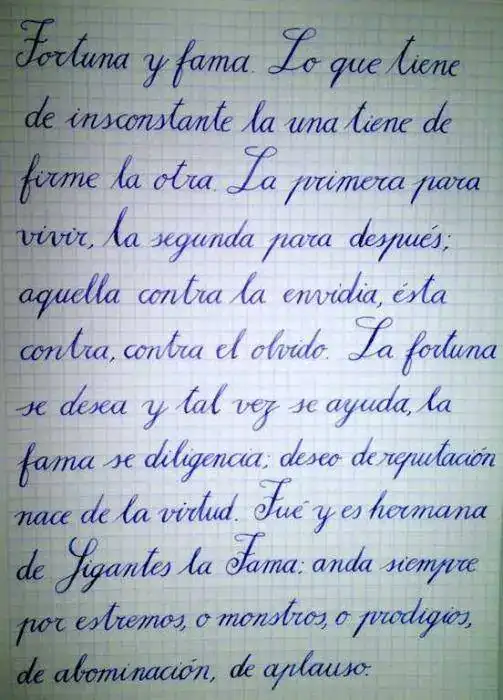 Fortuna y fama. Lo que tiene
de insconstante la una tiene de
firme la otra. La primera para
vivir, la segunda para después;
aquella contra la envidia, ésta
contra, contra el olvido. La fortuna
se desea y tal vez se ayuda, la
fama se diligencia; deseo de reputación
nace de la virtud. Fué y es hermana
de Gigantes la Fama: anda siempre
por estremos, o monstros, o prodigios,
de abominación, de aplauso.